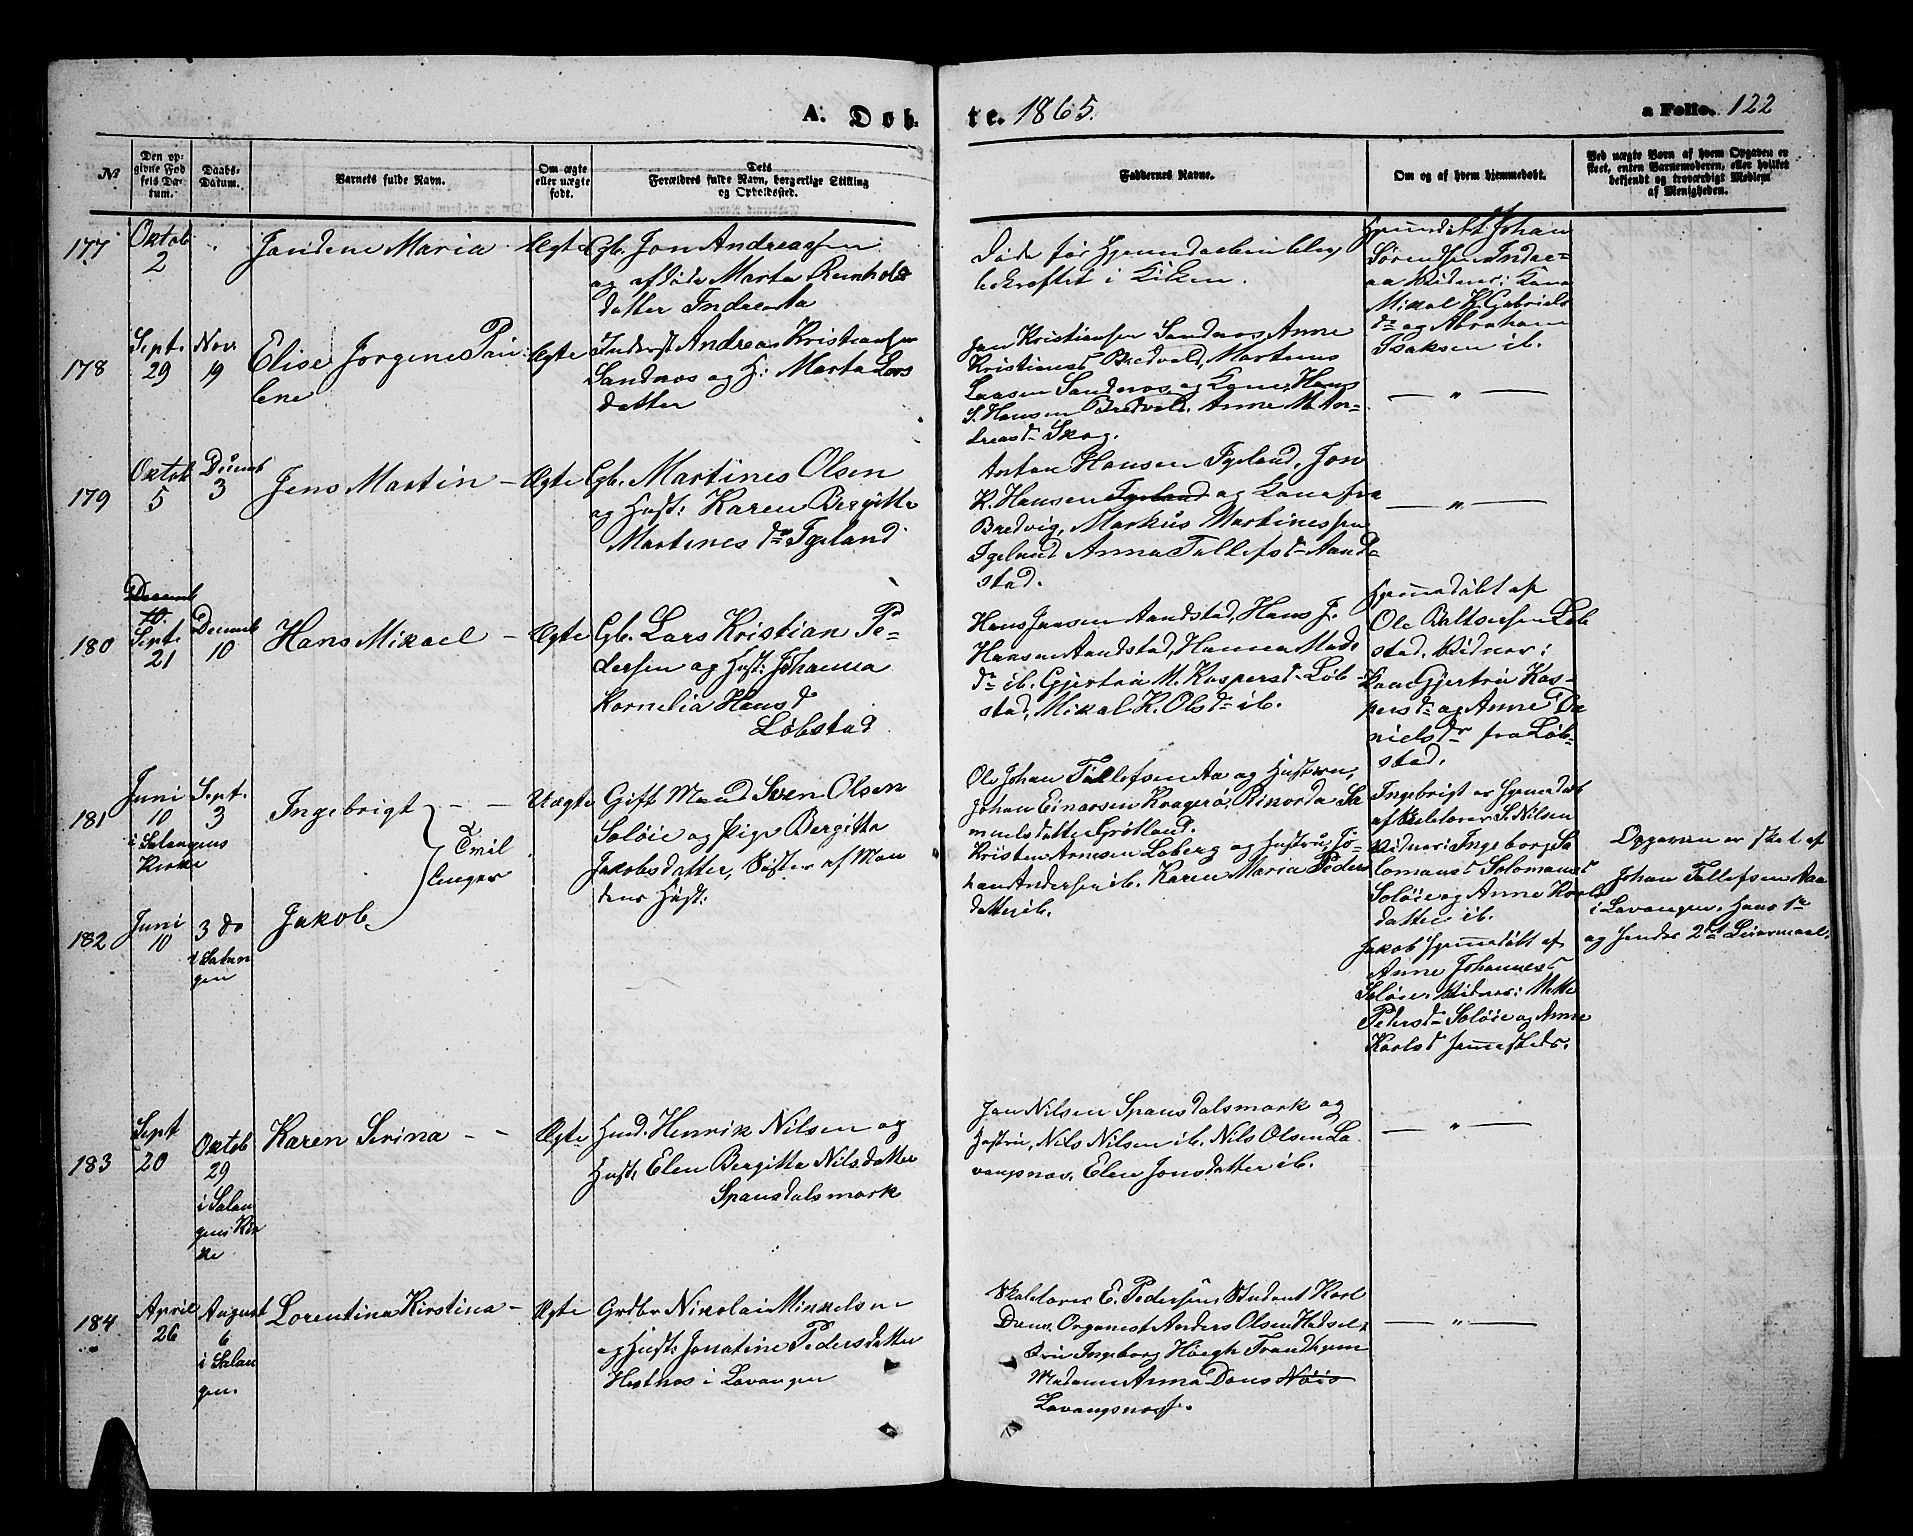 A. Døb
te. 1865.
a Folio. 122
№
Den op-
givne Fød
sels Da-
tum.
Daabs-
Datum.
Barnets fulde Navn.
Om ægte
eller uægte
født.
Dets
Forældres fulde Navn, borgerlige Stilling
og Opholdssted.
Faddernes Navne.
Om og af hvem hjemmedøbt.
Ved uægte Børn af hvem Opgaven er
skeet, enten Barnemoderen, eller hvilket
bekjendt og troværdigt Medlem
af Menigheden.
177
Oktob
2
Jandine Maria
Ægte
Gb. Jon Andreassen
og afdøde Marta Reinholds
datter Indreaa
Døde før Hjemmedaaben blev
bekræftet i Kirken.
Hjemdøbt af Johan
Sørensen Indre-
aa Vidner: Kone
Mikal K. Gabriels
dr og Abraham
Isaksen ib.
178
Sept.
29
Nov.
19
Elise Jørgene Pau
lene
Ægte
Inderst Andreas Kristiansen
Sandnes og H: Marta Lars
datter
Jan Kristiansen Sandnes, Anne
Kristiansd Bredvold, Martinus
Laasen Sandnos og Kone, Hans
S. Hansen Bredvold. Anne M. An-
dreasdr Skog.
— " —
179
Oktob
5
Decemb
3
Jens Martin —
Ægte
Gb. Martines Olsen
og Hust: Karen Bergitte
Martines dr Igeland
Anton Hansen Igeland, Jon
K. Hansen Igeland og Kone fra
Bredvig, Markus Martines fra
Igeland Anna Tollefsdr Aand-
stad.
— " —
180
Decemb
10.
Sept.
21
Decemb
10
Hans Mikael —
Ægte
Gb. Lars Kristian Pe-
dersen og Hust: Johanna
Kornelia Hansd
Løbstad
Hans Jansen Aandstad, Hans J.
Hansen Aandstad, Hanna Mad.
dr ib. Gjertru M. Kaspersdr Løb-
stad, Mikal K. Olsdr ib.
Hjemmedøbt af
Ole Baltsersen Løb
stad. Vidner:
Kone Gjertru Kas-
persdr og Anne Da
nielsdr fra Løb-
stad.
181
Juni
10
i Salangens
Kirke
Sept.
3
Ingebrigt — —
& Tvil
linger
Uægte
Gift Mand Sven Olsen
Soløie og pige Bergitte
Jakobsdatter, Søster af Man
dens Hust:
Ole Johan Tollefsen Aa og Hustru,
Johan Einarsen Kragerø, Rikorda Sa
muelsdatter Grøtland.
Kristen Arnesen Loberg og Hustru, Jo-
han Andersen ib. Karen Maria Peders
datter ib.
Ingebrigt er hjemmedøb
af Skolelærer S. Nilsen
Vidner: Ingeborg Sa
lomonsd Solomonsd
Soløie og Anne Karls
datter ib.
Opgaven er sket af
Johan Tollefsen Aa
i Lavangen. Hans 1ste
og hendes 2det Leiermaal.
182
Juni
10
3 do
i Salan
gen
Jakob
Jakob hjemmedøbt af
Anne Johannesd
Soløie, Vidner: Mette
Pedersdr Soløie og Anne
Karlsd sammesteds.
183
Sept
20
Oktob
29
i Salan
gens Kir
ke
Karen Serina — —
Ægte
Husd. Henrik Nilsen og
Hust: Elen Bergitte Nilsdatter
Spansdalsmark
Jon Nilsen Spansdalsmark og
Hustru, Nils Nilsen ib. Nils Olsen La-
vangsnes. Elen Jonsdatter ib.
— " —
184
April
26
August
6
i Salan
gen.
Lorentina Kirstina —
Ægte
Grdbr Nikolai Mikkelsen
og Hust: Jonatine Pedersdatter
Hestnes i Lavangen
Skolelærer E. Pedersen, Student Karl
Dons, Organist Anders Olsen Hadsel,
Fru Ingeborg Høegh Trondhjem
Madame Anna Dons Nøis
Lavangsnesset.
— " —